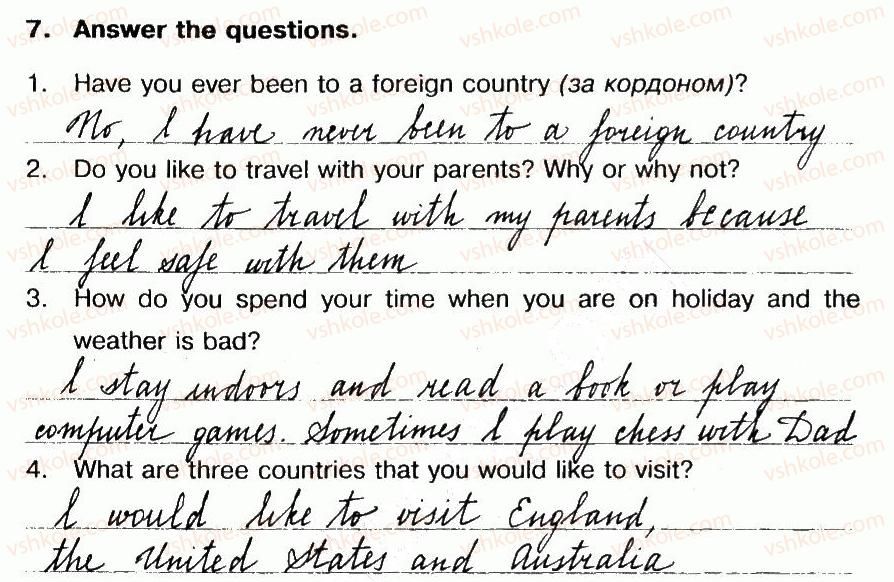 7. Answer the questions.
1. Have you ever been to a foreign country (за кордоном)?
No, I have never been to a foreign country
2. Do you like to travel with your parents? Why or why not?
I like to travel with my parents because
I feel safe with them
3. How do you spend your time when you are on holiday and the
weather is bad?
I stay indoors and read a book or play
computer games. Sometimes I play chess with Dad
4. What are three countries that you would like to visit?
I would like to visit England,
the United States and Australia